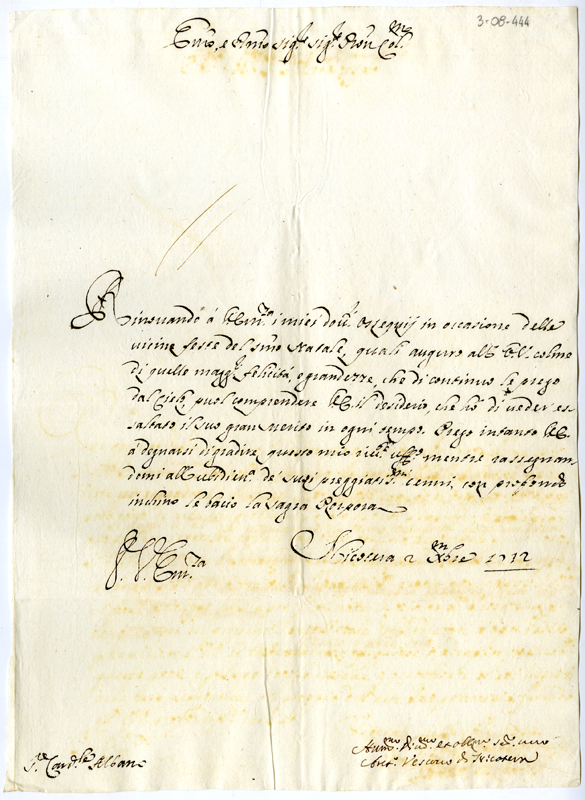 3-08-444
Em̃o, e Rm̃o Sig.r Sig.r Pron Col.mo
Rinovando à V. Em.za i miei dov.ti ossequij in occasione delle
vicine feste del Smo Natale, quali auguro all' E. V. colme
di quelle magg.ri felicità, e grandezze, che di continuo le prego
dal Cielo, può comprendere V. E. il desiderio, che hò di veder es=
saltato il suo gran merito in ogni tempo. Prego intanto V. E.
a degnarsi di gradire questo mio riv.te uff.o mentre rassegnan=
domi all' ubidien.a de' suoi preggiatis.mi cenni, con profondo
inchino le bacio la sagra Porpora
Nicotera 2 Xmbre 1712
D. V. Em.za
S.r Card.le Albani
Hum.mo D.mo et oblig.mo ser. vero
Vescovo di Nicotera